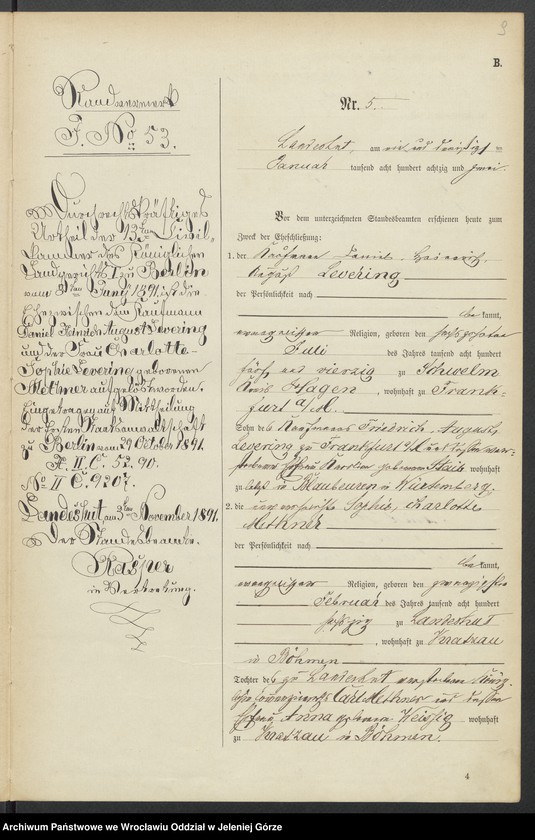 9
B.
Randvermerk
J. No 53.
Durch rechtskräftiges
Urtheil der 13ten Civil-
kammer des Königlichen
Landgerichts I zu Berlin
vom 8ten Juny 1891 ist die
Ehe zwischen dem Kaufmann
Daniel Heinrich August Levering
und der Frau Charlotte
Sophie Levering geborenen
Methner aufgelöst worden.
Eingetragen auf Mittheilung
der Ersten Staatsanwaltschaft
zu Berlin vom 29 October 1891.
II. C. 52. 90.
No II C. 9207.
Landeshut am 3ten November 1891.
Der Standesbeamte.
Kasper
in Vertretung.
Nr. 5.
Landeshut, am ein und dreißigsten
Januar tausend acht hundert achtzig und zwei.
Vor dem unterzeichneten Standesbeamten erschienen heute zum
Zweck der Eheschließung:
1. der Kaufmann Daniel Heinrich
August Levering
der Persönlichkeit nach
bekannt,
evangelischer Religion, geboren den
Juli des Jahres tausend acht hundert
fünf und vierzig zu Schwelm
Kreis Hagen, wohnhaft zu Frank-
furt a/M.
Sohn des Kaufmanns Friedrich August
Levering zu Frankfurt a/M und dessen ver-
storbenen Ehefrau geborenen wohnhaft
zu in Blaubeuren in Würtemberg.
2. die Sophie, Charlotte
Methner
der Persönlichkeit nach
bekannt,
evangelischer Religion, geboren den zwanzigsten
Februar des Jahres tausend acht hundert
sechszig zu Landeshut
, wohnhaft zu Kratzau
in Böhmen
Tochter des zu Landeshut verstorbenen
Carl Methner und dessen
Ehefrau Anna geborenen wohnhaft
zu Kratzau in Böhmen.
4
Archiwum Państwowe we Wrocławiu Oddział w Jeleniej Górze